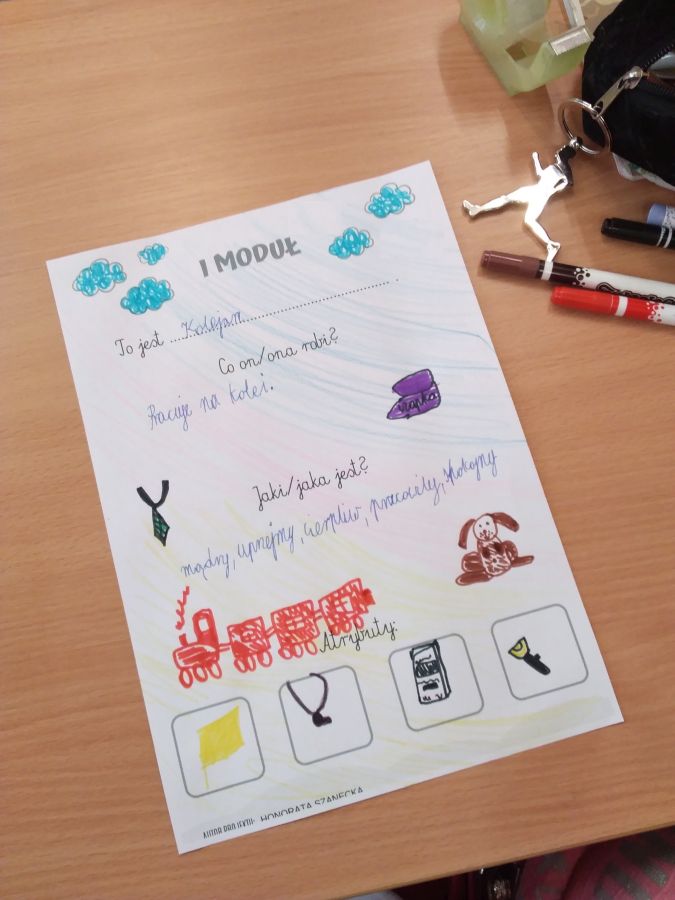 I MODUŁ
To jest Kolejarz.
Co on/ona robi?
Pracuje na kolei.
czapka
Jaki/jaka jest?
mądry, uprzejmy, cierpliw, pracowity, spokojny
Atrybuty:
AUTOR PROJEKTU: HONORATA SZANECKA